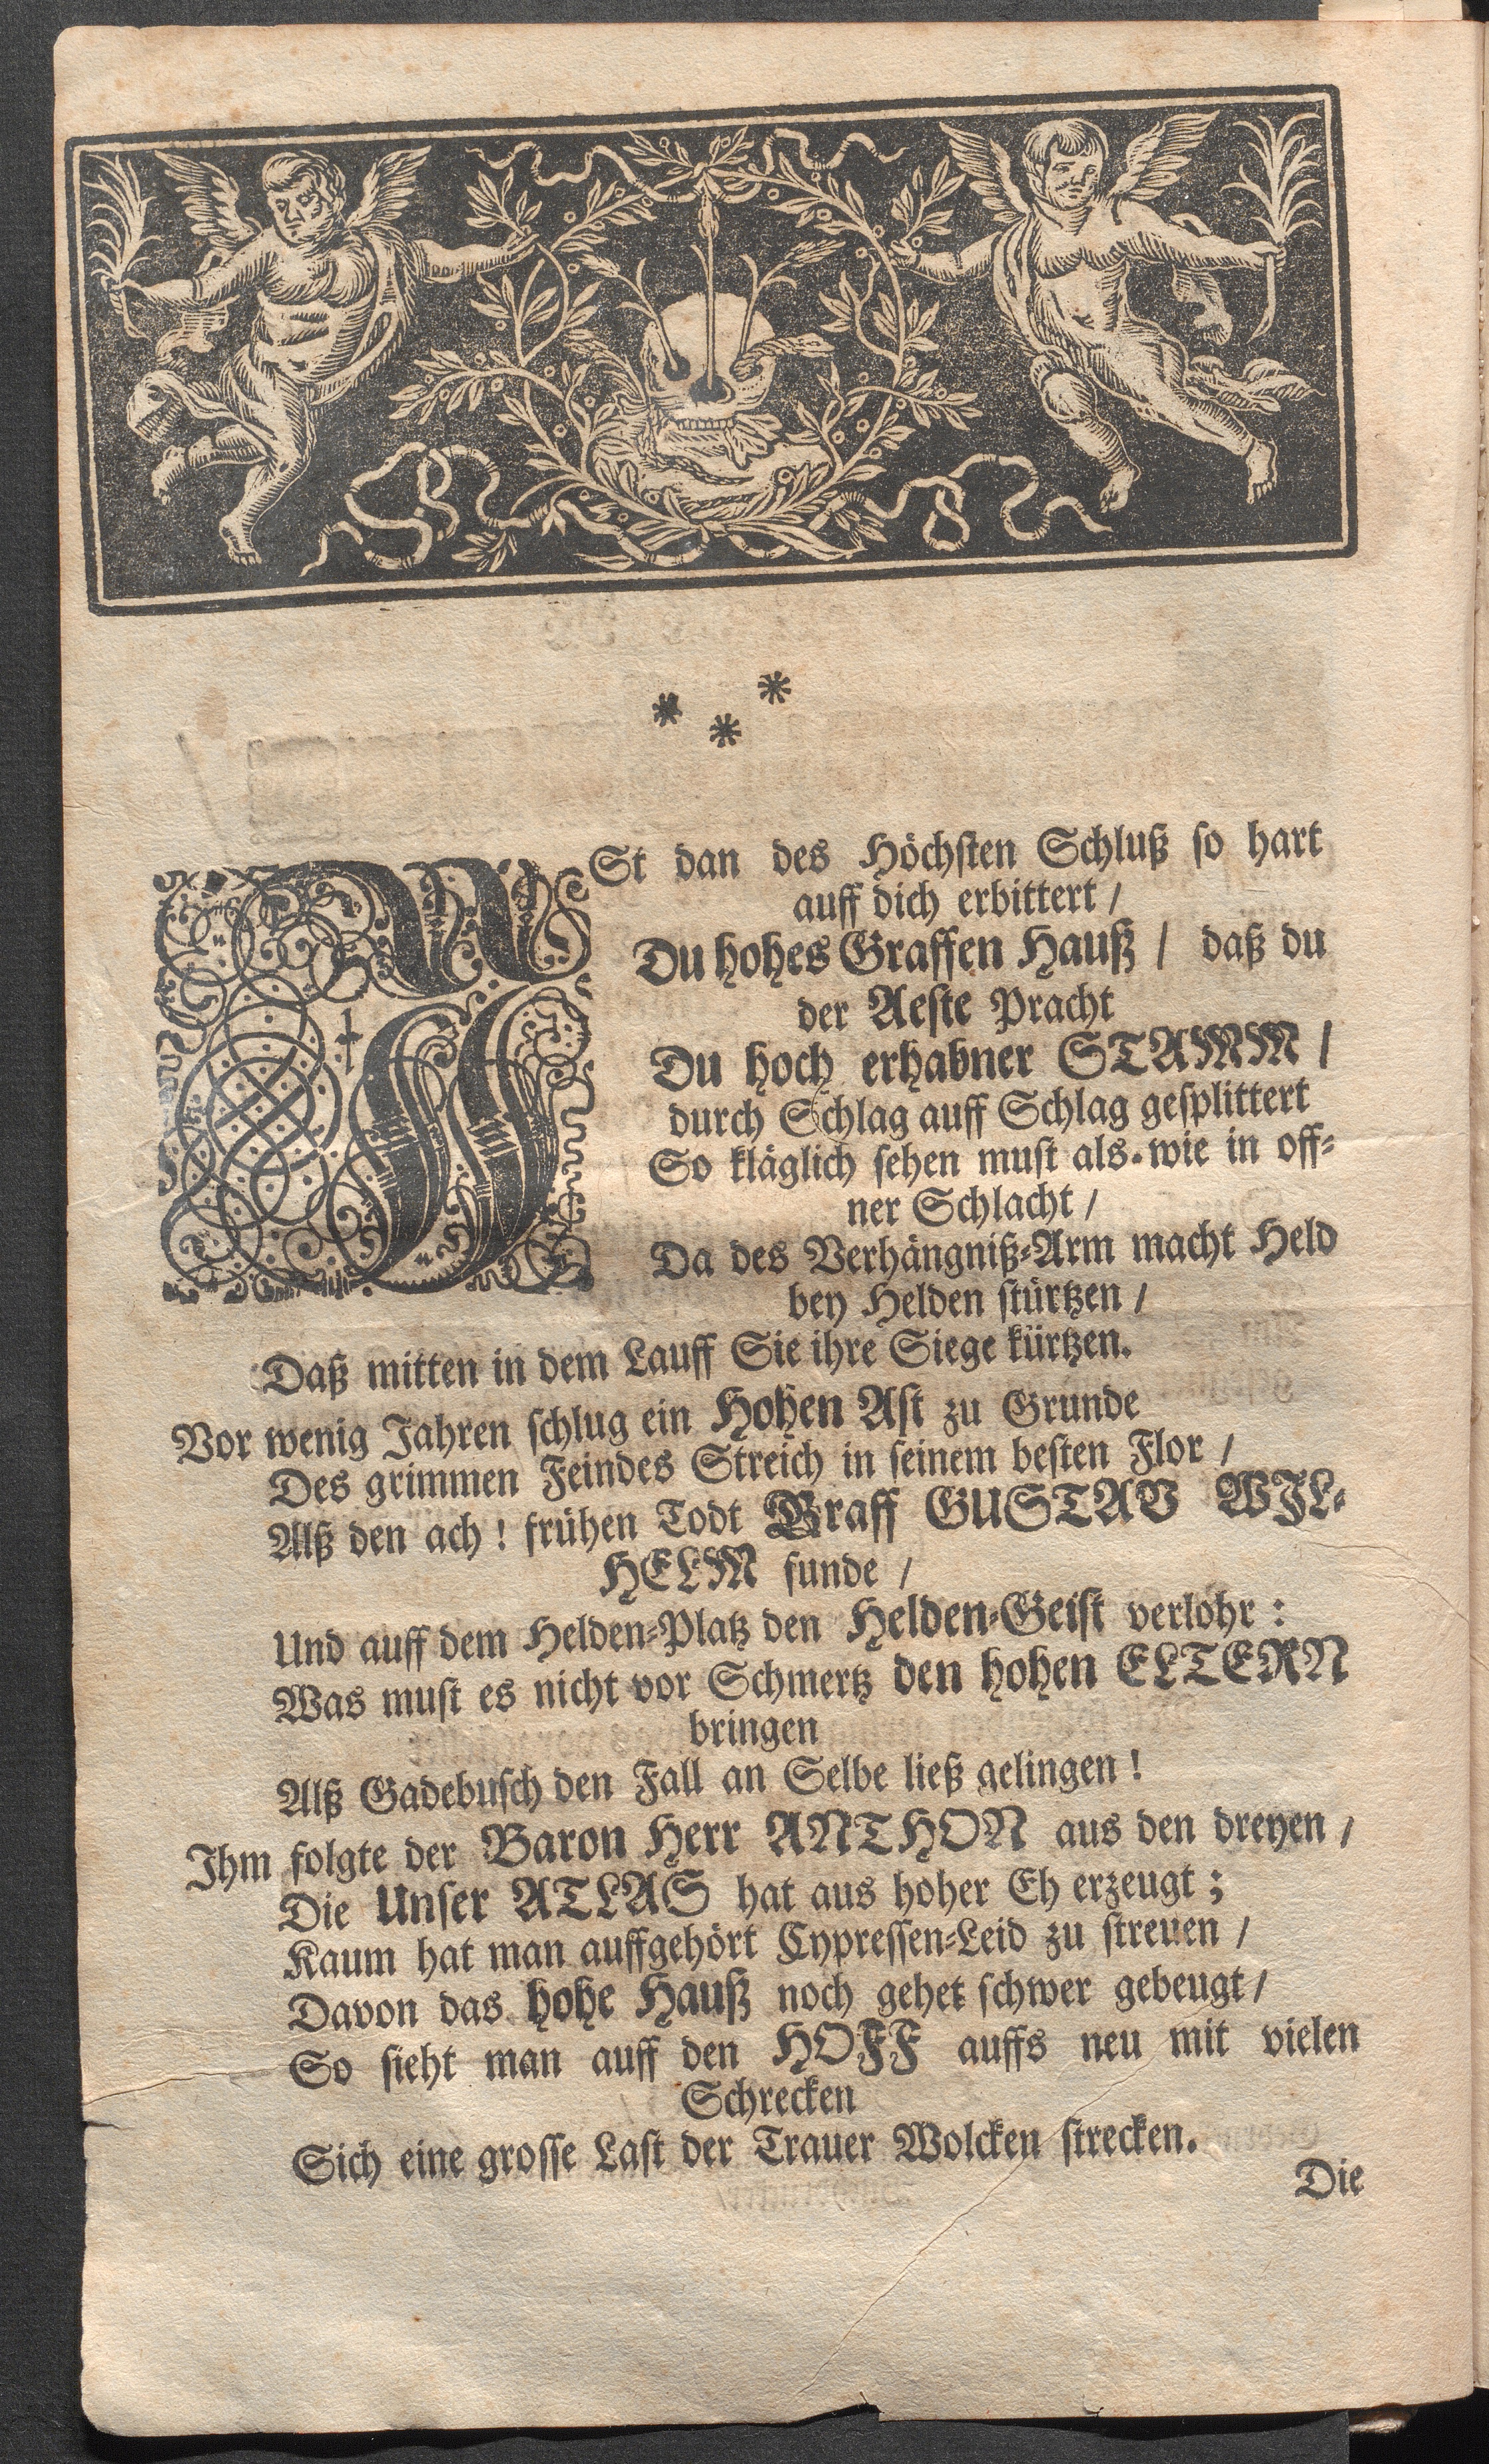 * * *
ISt dan des Höchsten Schluß so hart
auff dich erbittert /
Du hohes Graffen Hauß / daß du
der Aeste Pracht
Du hoch erhabner STAMM /
durch Schlag auff Schlag gesplittert
So kläglich sehen must als wie in off-
ner Schlacht /
Da des Verhängniß-Arm macht Held
bey Helden stürtzen /
Daß mitten in dem Lauff Sie ihre Siege kürtzen.
Vor wenig Jahren schlug ein Hohen Ast zu Grunde
Des grimmen Feindes Streich in seinem besten Flor /
Alß den ach! frühen Todt Graff GUSTAV WIL-
HELM funde /
Und auff dem Helden-Platz den Helden-Geist verlohr:
Was must es nicht vor Schmertz den hohen ELTERN
bringen
Alß Gadebusch den Fall an Selbe ließ gelingen!
Ihm folgte der Baron Herr ANTHON aus den dreyen /
Die Unser ATLAS hat aus hoher Eh erzeugt;
Kaum hat man auffgehört Cypressen-Leid zu streuen /
Davon das hohe Hauß noch gehet schwer gebeugt /
So sieht man auff den HOFF auffs neu mit vielen
Schrecken
Sich eine grosse Last der Trauer Wolcken strecken.
Die